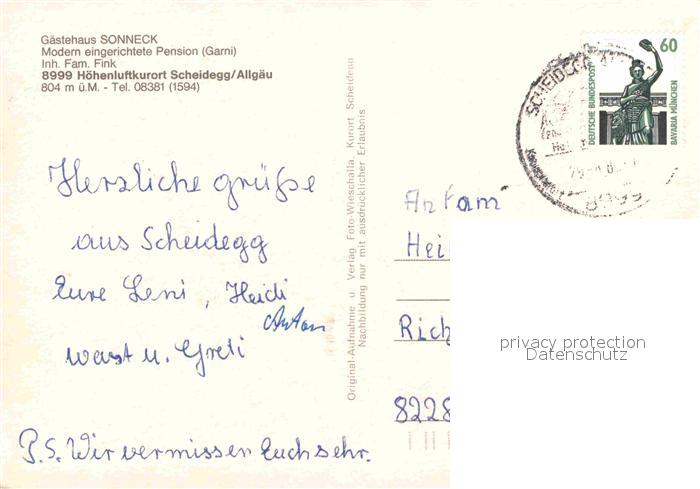 Gästehaus SONNECK
Modern eingerichtete Pension (Garni)
Inh. Fam. Fink
8999 Höhenluftkurort Scheidegg/Allgäu
804 m ü.M. - Tel. 08381 (1594)
Herzliche grüße
aus Scheidegg
Eure Leni, Heidi
Anton
u. Greti
P.S. Wir vermissen Euch sehr.
Original-Aufnahme u. Verlag Foto-Wieschalla, Kurort Scheidegg
Nachbildung nur mit ausdrücklicher Erlaubnis
60
DEUTSCHE BUNDESPOST
BAVARIA MÜNCHEN
SCHEIDEGG
8999
An Fam
Hei
Rich
8228
privacy protection
Datenschutz